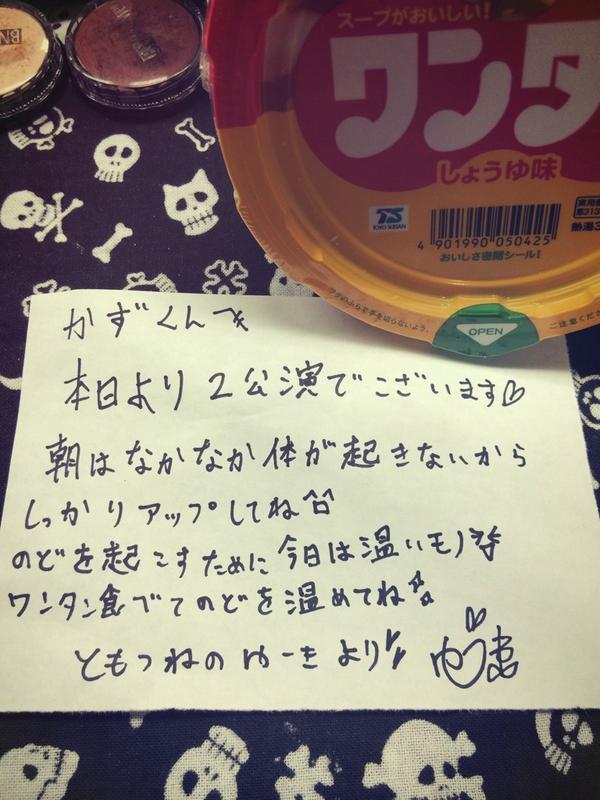 BN
スープがおいしい!
ワンタ
しょうゆ味
TOYO SUISAN
4 901990 050425
熱湯3
おいしさ密閉シール!
フタのふちで手を切らないよう、
ご注意くださ
OPEN
かずくんへ
本日より2公演でございます♡
朝はなかなか体が起きないから
しっかりアップしてね^^
のどを起こすために今日は温いモノ
ワンタン食べてのどを温めてね
ともつねのゆーきより